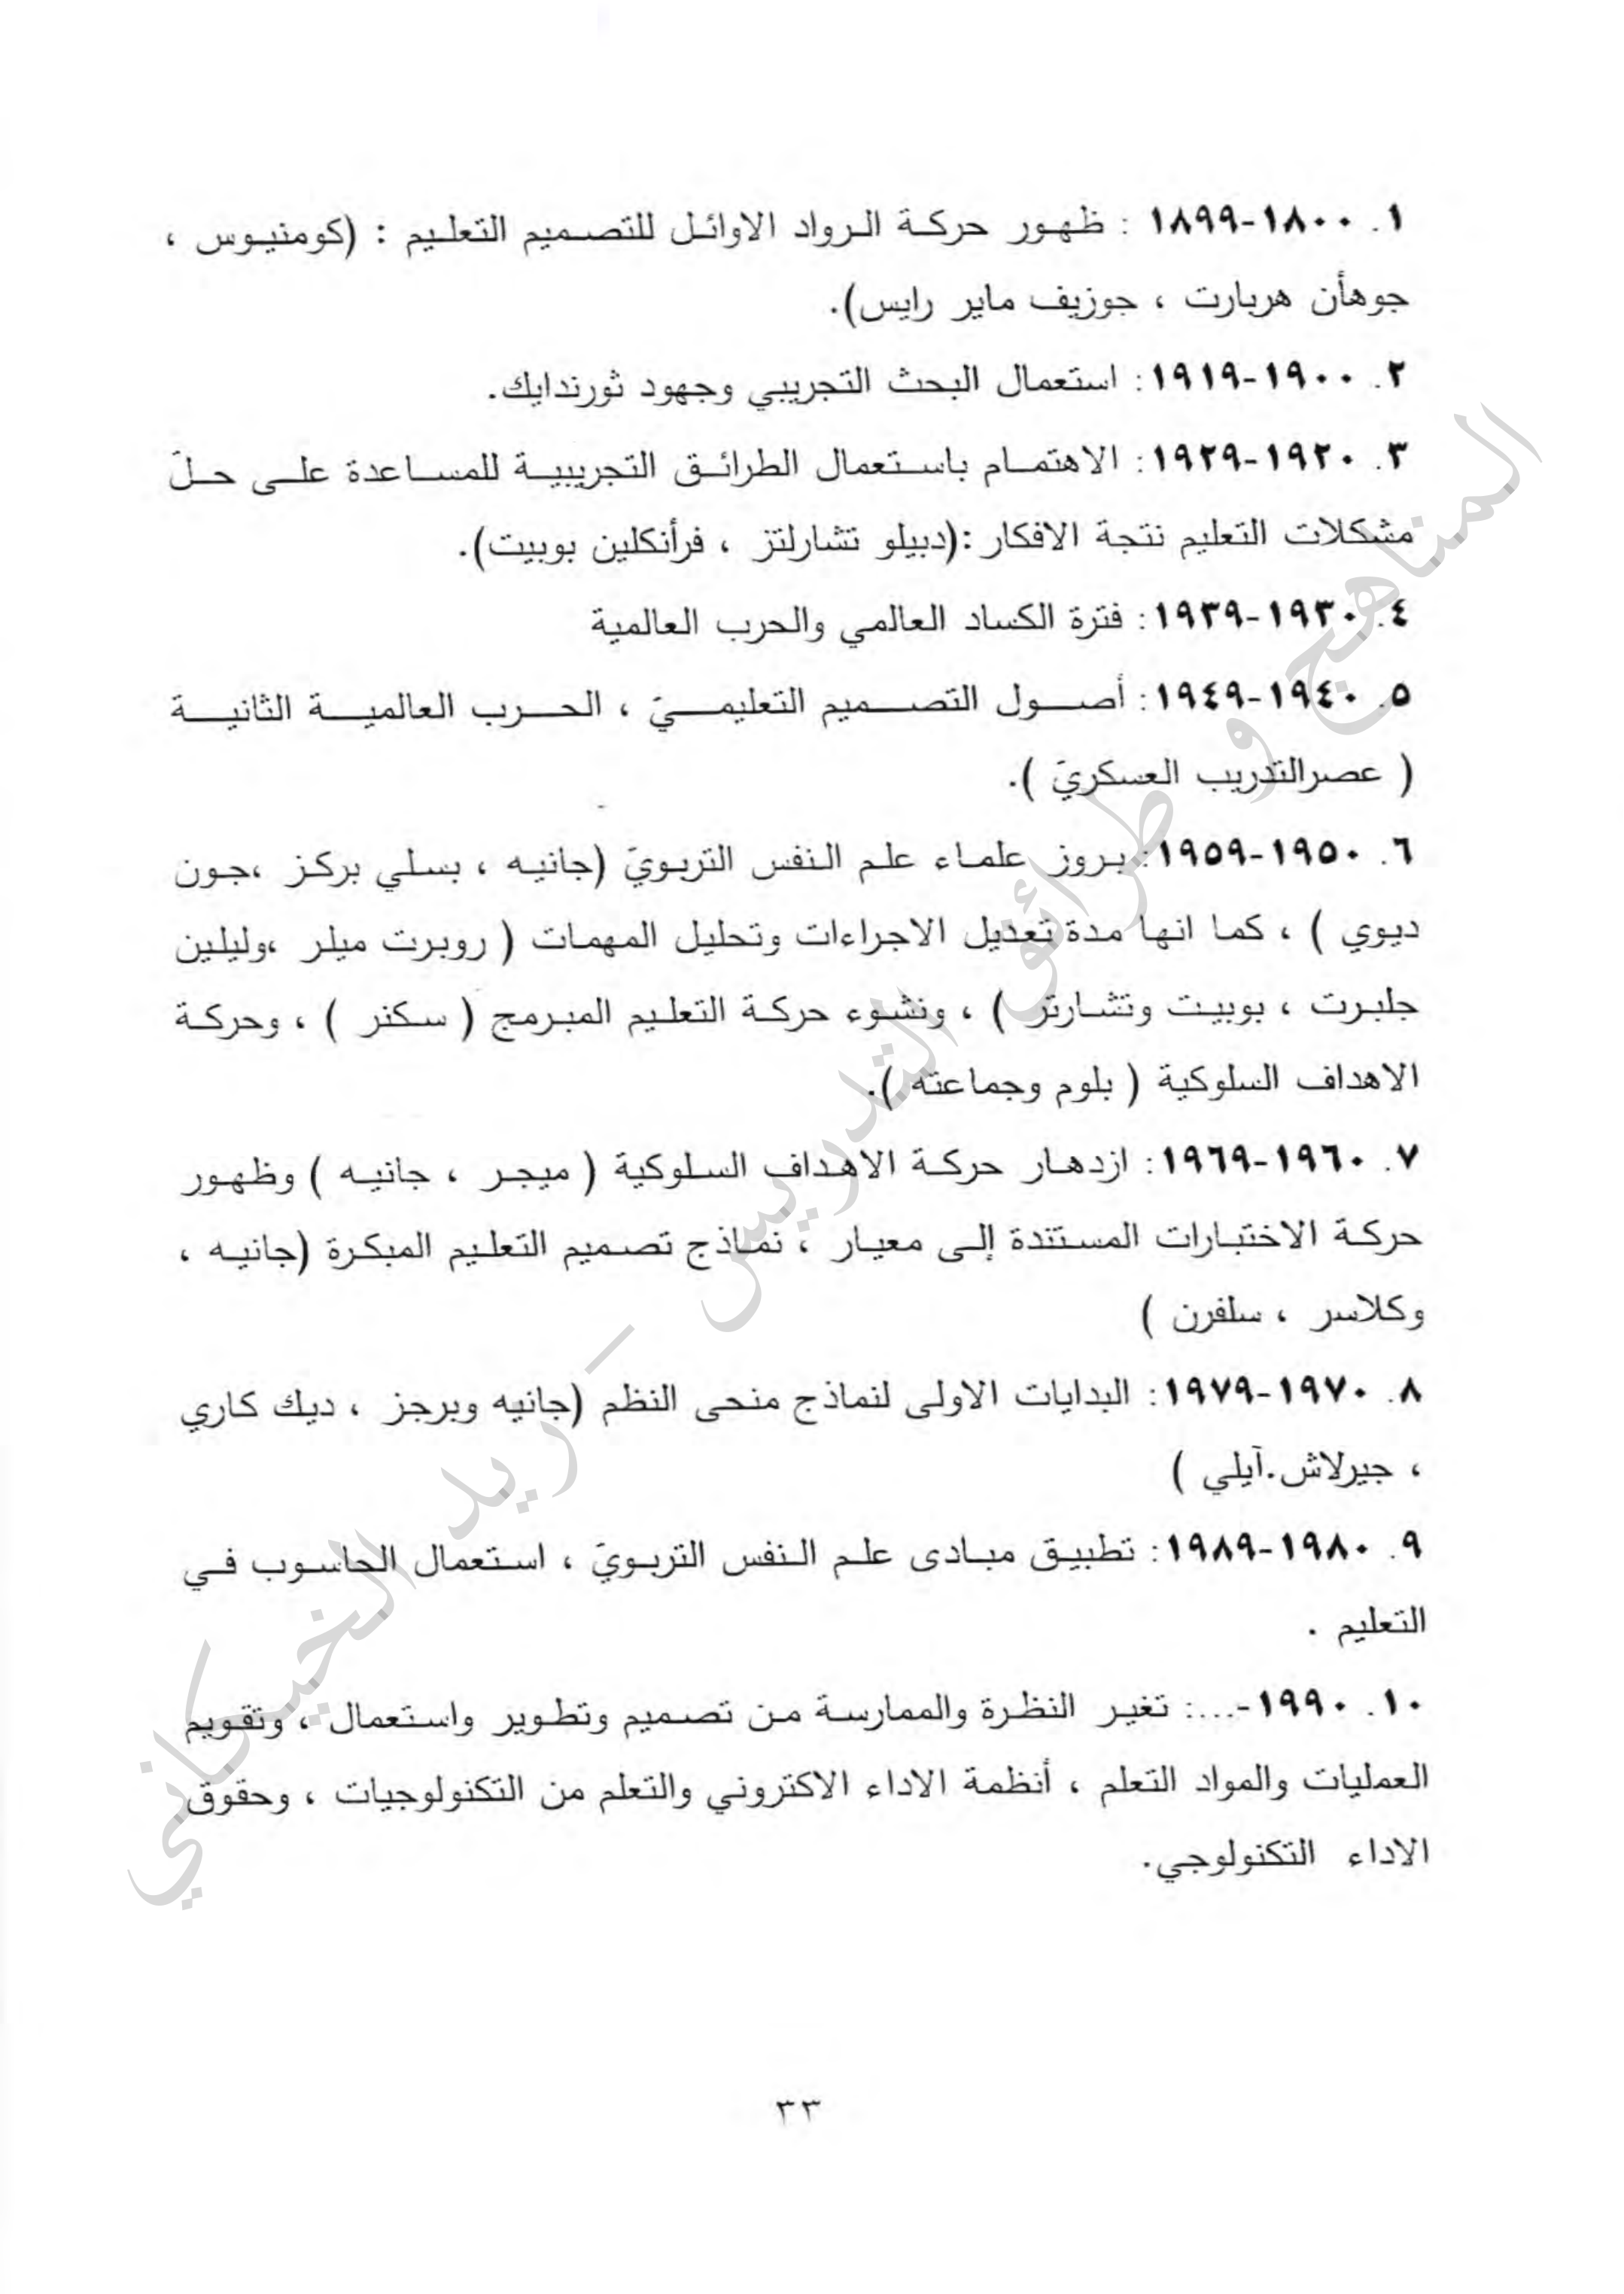 ١. ١٨٠٠-١٨٩٩ : ظهور حركة الرواد الاوائل للتصميم التعليم : (كومنيوس ،
جوهأن هربارت ، جوزيف ماير رايس).
٢. ١٩٠٠-١٩١٩: استعمال البحث التجريبي وجهود ثورندايك.
٣. ١٩٢٠-١٩٢٩: الاهتمام باستعمال الطرائق التجريبية للمساعدة على حلّ
مشكلات التعليم نتجة الافكار :(دبيلو تشارلتز ، فرأنكلين بوبيت).
٤. ١٩٣٠-١٩٣٩: فترة الكساد العالمي والحرب العالمية
٥. ١٩٤٠-١٩٤٩: أصول التصميم التعليميّ ، الحرب العالمية الثانية
( عصرالتدريب العسكريّ ).
٦. ١٩٥٠-١٩٥٩: بروز علماء علم النفس التربويّ (جانيه ، بسلي بركز ،جون
ديوي ) ، كما انها مدة تعديل الاجراءات وتحليل المهمات ( روبرت ميلر ،وليلين
جلبرت ، بوبيت وتشارتر ) ، ونشوء حركة التعليم المبرمج ( سكنر ) ، وحركة
الاهداف السلوكية ( بلوم وجماعته ).
٧. ١٩٦٠-١٩٦٩: ازدهار حركة الاهداف السلوكية ( ميجر ، جانيه ) وظهور
حركة الاختبارات المستندة إلى معيار ، نماذج تصميم التعليم المبكرة (جانيه ،
وكلاسر ، سلفرن )
٨. ١٩٧٠-١٩٧٩: البدايات الاولى لنماذج منحى النظم (جانيه وبرجز ، ديك كاري
، جيرلاش.آيلي )
٩. ١٩٨٠-١٩٨٩: تطبيق مبادى علم النفس التربويّ ، استعمال الحاسوب في
التعليم .
١٠. ١٩٩٠-...: تغير النظرة والممارسة من تصميم وتطوير واستعمال ، وتقويم
العمليات والمواد التعلم ، أنظمة الاداء الاكتروني والتعلم من التكنولوجيات ، وحقوق
الاداء التكنولوجي.
المناهج و طرائق التدريس – ريد الخيكاني
٣٣